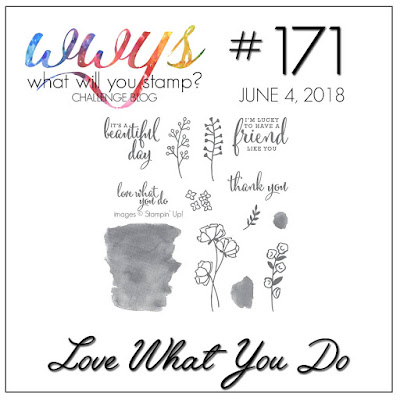 wwys
what will you stamp?
CHALLENGE BLOG
# 171
JUNE 4, 2018
IT'S A
beautiful
day
I'M LUCKY
TO HAVE A
friend
LIKE YOU
love what
you do
thank you
images © Stampin' Up!
Love What You Do